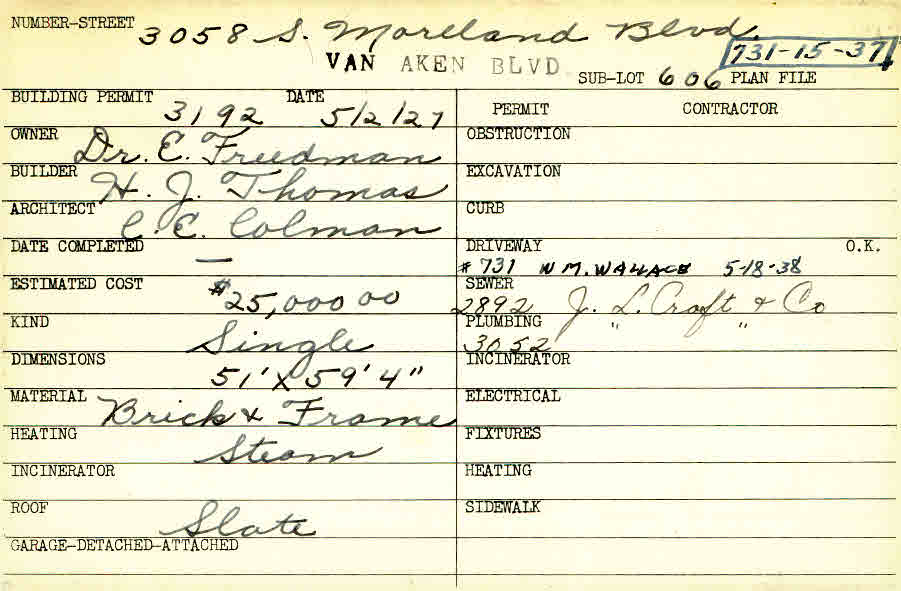 NUMBER-STREET 3058 S. Moreland Blvd.
VAN AKEN BLVD
731-15-37
SUB-LOT 606 PLAN FILE
BUILDING PERMIT DATE
3192 5/2/27
PERMIT CONTRACTOR
OWNER Dr. E. Freedman
OBSTRUCTION
BUILDER H. J. Thomas
EXCAVATION
ARCHITECT C. E. Colman
CURB
DATE COMPLETED —
DRIVEWAY O.K.
#731 WM. WALLACE 5-18-38
ESTIMATED COST $25,000 00
SEWER
2892 J. L. Croft & Co
KIND Single
PLUMBING " "
3052
DIMENSIONS 51' X 59' 4"
INCINERATOR
MATERIAL Brick & Frame
ELECTRICAL
HEATING Steam
FIXTURES
INCINERATOR
HEATING
ROOF Slate
SIDEWALK
GARAGE-DETACHED-ATTACHED